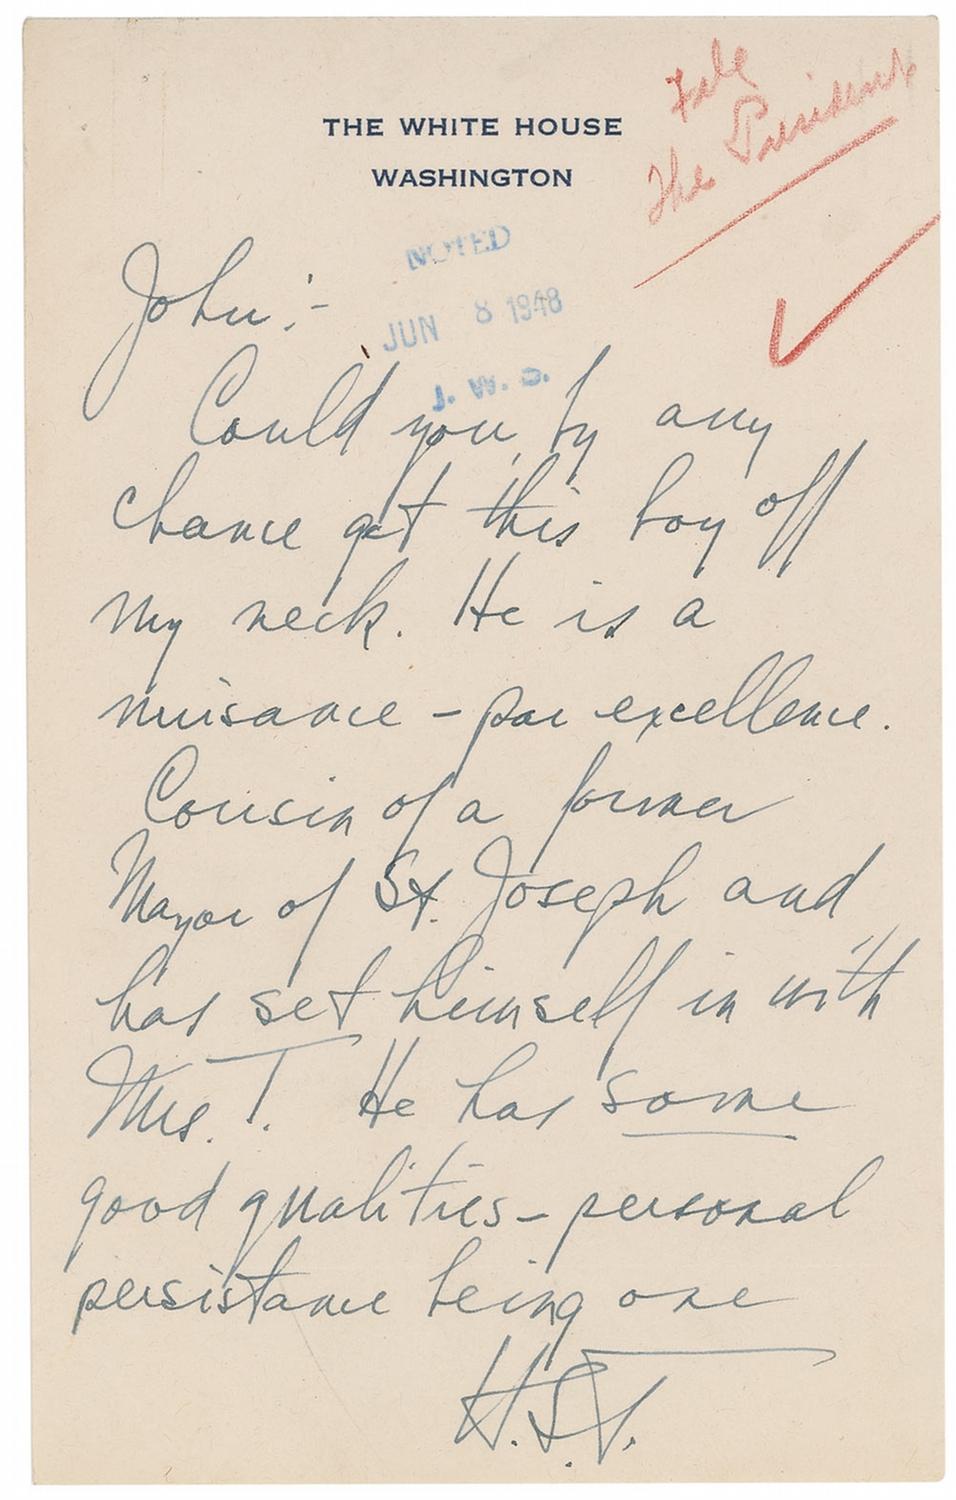 THE WHITE HOUSE
WASHINGTON
File
The President
NOTED
JUN 8 1948
J. W. S.
John:-
Could you, by any
chance get this boy off
my neck. He is a
nuisance - par excellence.
Cousin of a former
Mayor of St. Joseph and
has set himself in with
Mrs. T. He has some
good qualities - personal
persistance being one
H.S.T.